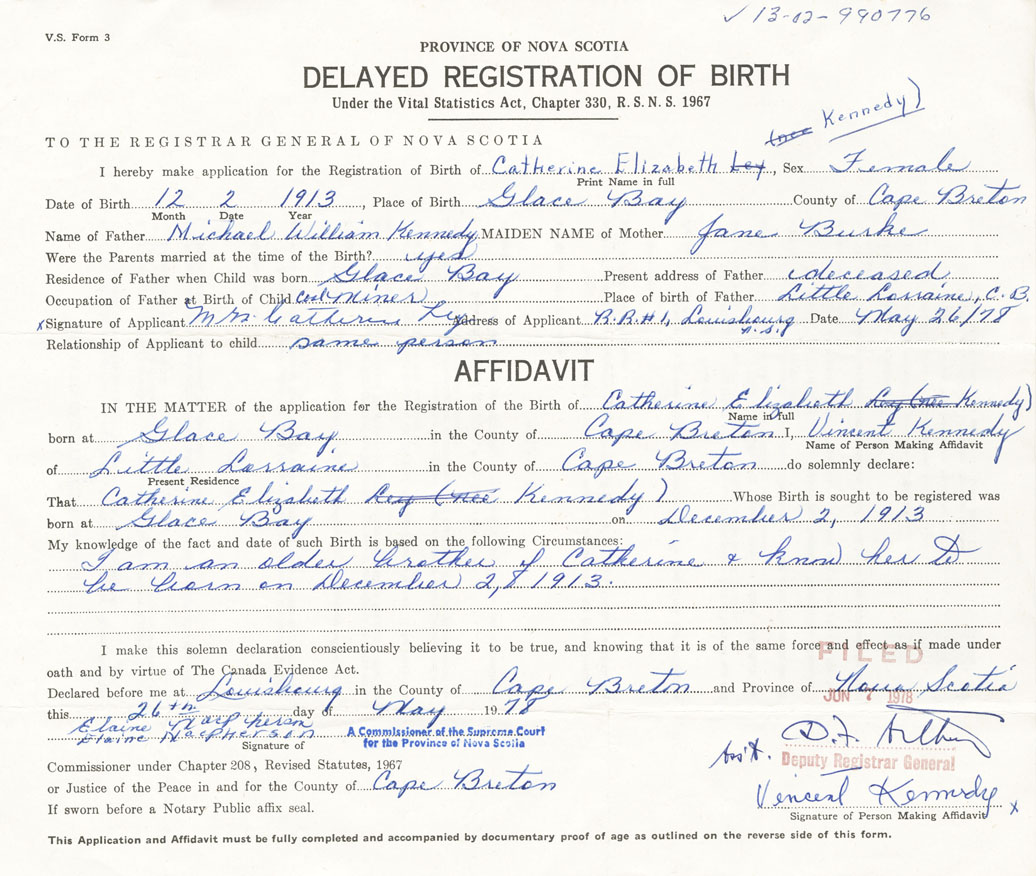 ✓ 13-02-990776
V.S. Form 3
PROVINCE OF NOVA SCOTIA
DELAYED REGISTRATION OF BIRTH
Under the Vital Statistics Act, Chapter 330, R. S. N. S. 1967
(nee Kennedy)
TO THE REGISTRAR GENERAL OF NOVA SCOTIA
I hereby make application for the Registration of Birth of Catherine Elizabeth Ley, Sex Female
Print Name in full
Date of Birth 12 2 1913, Place of Birth Glace Bay County of Cape Breton
Month Date Year
Name of Father Michael William Kennedy MAIDEN NAME of Mother Jane Burke
Were the Parents married at the time of the Birth? yes
Residence of Father when Child was born Glace Bay Present address of Father deceased
Occupation of Father at Birth of Child Coal Miner Place of birth of Father Little Lorraine, C.B.
x Signature of Applicant Mrs. Catherine Ley Address of Applicant R.R.#1, Louisbourg N.S. Date May 26/78
Relationship of Applicant to child same person
AFFIDAVIT
IN THE MATTER of the application for the Registration of the Birth of Catherine Elizabeth Ley (nee Kennedy)
Name in full
born at Glace Bay in the County of Cape Breton I, Vincent Kennedy
Name of Person Making Affidavit
of Little Lorraine in the County of Cape Breton do solemnly declare:
Present Residence
That Catherine Elizabeth Ley (nee Kennedy) Whose Birth is sought to be registered was
born at Glace Bay on December 2, 1913
My knowledge of the fact and date of such Birth is based on the following Circumstances:
I am an older brother of Catherine & know her to
be born on December 2, 1913.
I make this solemn declaration conscientiously believing it to be true, and knowing that it is of the same force and effect as if made under
FILED
oath and by virtue of The Canada Evidence Act.
Declared before me at Louisbourg in the County of Cape Breton and Province of Nova Scotia
JUN 7 1978
this 26th day of May 1978
Elaine Macpherson
Elaine Macpherson
A Commissioner of the Supreme Court
for the Province of Nova Scotia
Signature of
Ass't. Deputy Registrar General
Commissioner under Chapter 208, Revised Statutes, 1967
or Justice of the Peace in and for the County of Cape Breton
Vincent Kennedy x
Signature of Person Making Affidavit
If sworn before a Notary Public affix seal.
This Application and Affidavit must be fully completed and accompanied by documentary proof of age as outlined on the reverse side of this form.